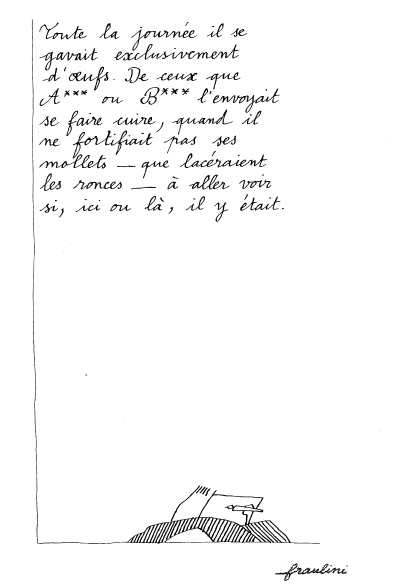 Toute la journée il se
gavait exclusivement
d'œufs. De ceux que
A*** ou B*** l'envoyait
se faire cuire, quand il
ne fortifiait pas ses
mollets — que lacéraient
les ronces — à aller voir
si, ici ou là, il y était.
fraulini